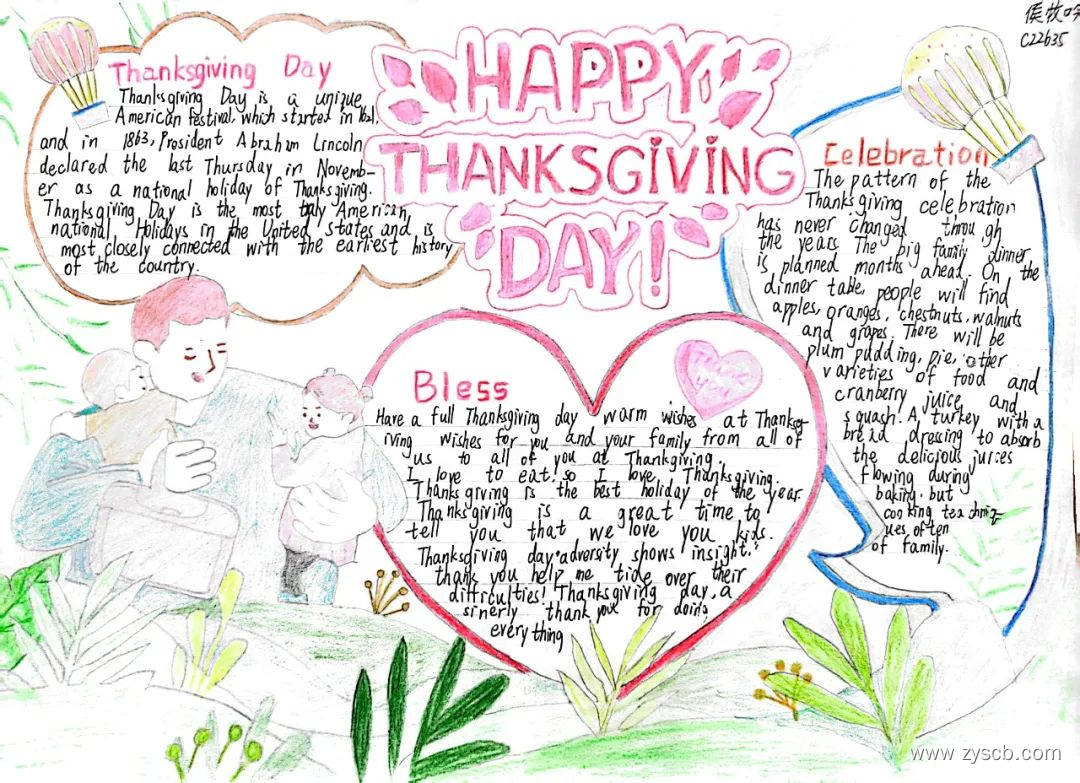 侯牧吟
C22b35
HAPPY
THANKSGiViNG
DAY!
Thanksgiving Day
Thanksgiving Day is a unique
American festival, which started in 1621,
and in 1863, President Abraham Lrncoln
declared the last Thursday in Novemb-
er as a national holiday of Thanksgiving.
Thanksgiving Day is the most truly American,
national, Holidays in the United States and is
most closely connected with the earliest history
of the country.
Bless
Have a full Thanksgiving day warm wishes at Thanksg-
iving wishes for you and your family from all of
us to all of you at Thankgiving
I love to eat. so I love Thanksgiving.
Thanksgiving is the best holiday of the year
Thanksgiving is a great time to
tell you that we love you kids.
Thanksgiving day. adversity shows insight.
thank you help me tide over their
difficulties! Thanksgiving day, a
sinerly thank you for doing
everything
Celebration
The pattern of the
Thanksgiving celebration
has never changed through
the years The big family dinner
is planned months ahead. On the
dinner table, people will find
apples, oranges, chestnuts, walnuts
and grapes. There will be
plum pudding, pie, other
varietes of food and
cranberry juice and
squash. A turkey with a
bread dressing to absorb
the delicious juices
flowing during
baking. but
cooking techniq-
ues often
of family.
www.zyscb.com